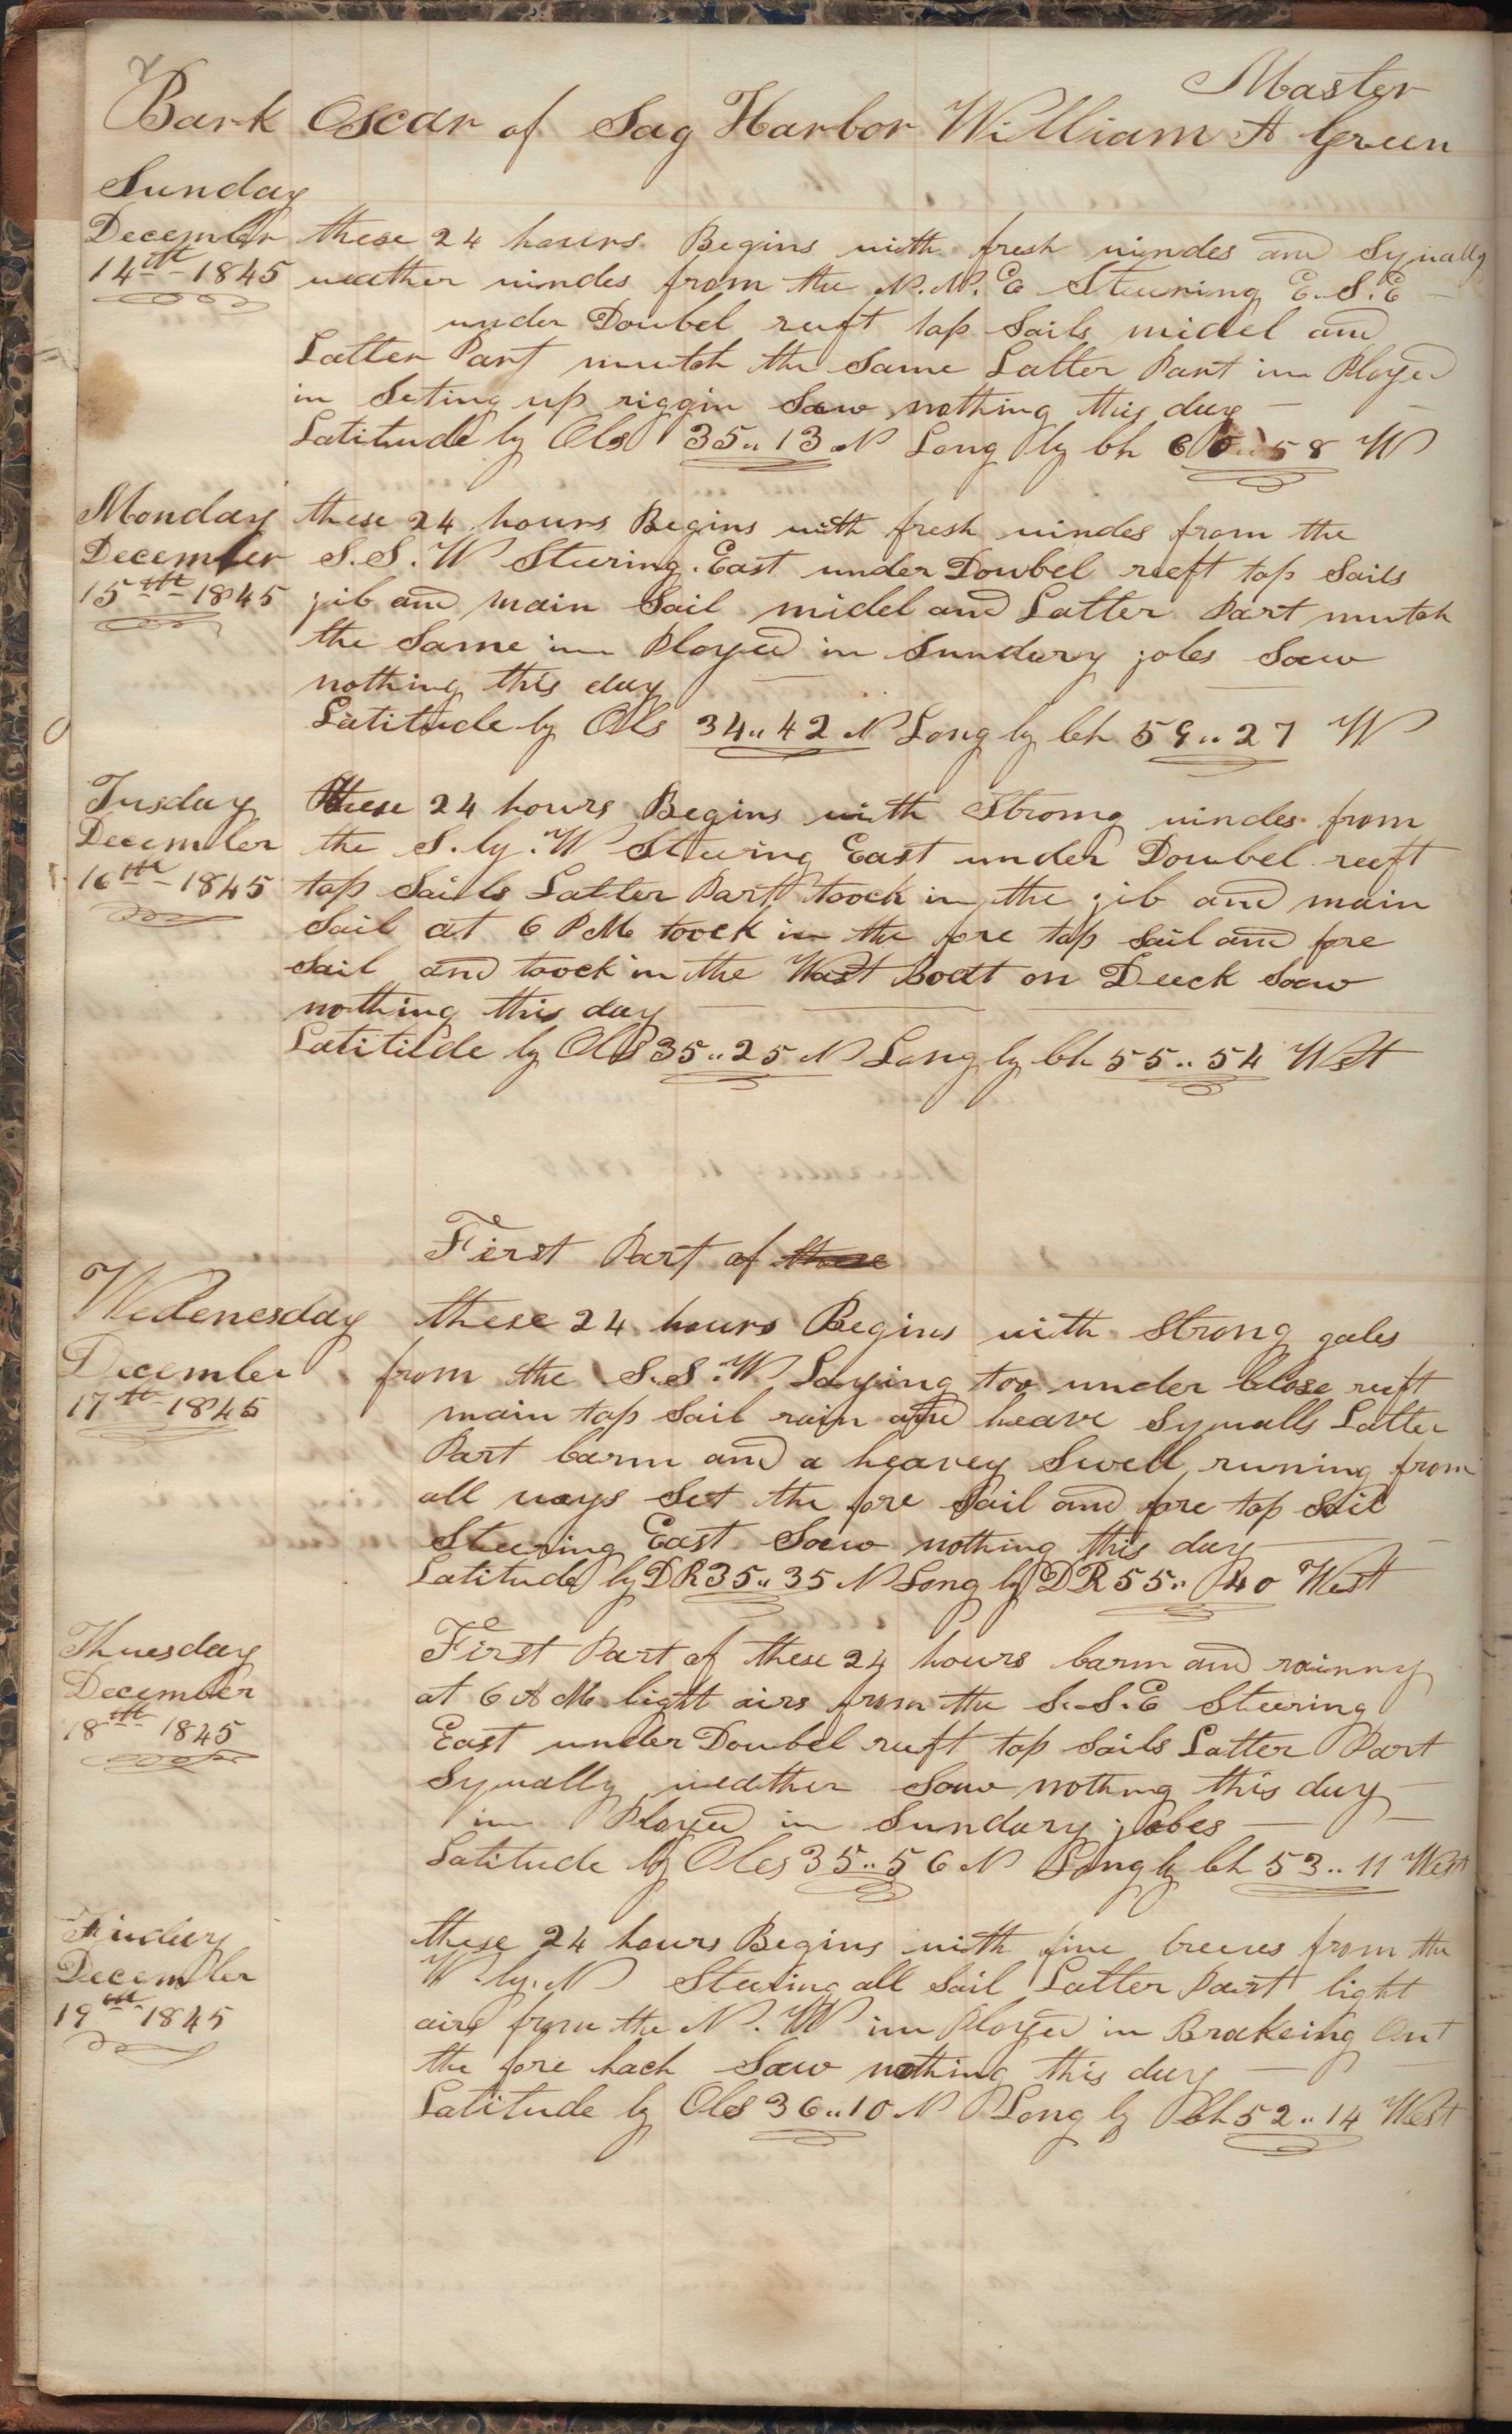 Master
Bark Oscar of Sag Harbor William A Green
Sunday
December these 24 hours Begins with fresh windes and Squally
14th 1845 weather windes from the N.N.E Steuring E.S.E
under Doubel reeft top Sails midel and
Latter Part mutch the Same Latter Part im Ployed
in Seting up riggin Saw nothing this day
Latitude by Obs 35..13 N Long by Ch 60..58 W
Monday these 24 hours Begins with fresh windes from the
December S.S.W Steuring East under Doubel reeft top Sails
15th 1845 jib and main Sail midel and Latter Part mutch
the Same im Ployed in Sundury jobs Saw
nothing this day
Latitude by Obs 34..42 N Long by Ch 59..27 W
Tusday these 24 hours Begins with Strong windes from
December the S.by.W Steuring East under Doubel reeft
16th 1845 top Sails Latter Part toock in the jib and main
Sail at 6 PM toock in the fore top Sail and fore
Sail and toock in the Wast Boat on Deeck Saw
nothing this day
Latitude by Obs 35..25 N Long by Ch 55..54 West
First Part of these
Wedenesday these 24 hours Begins with Strong gales
December from the S.S.W Laying too under Close reeft
17th 1845 main top Sail rain and heave Squalls Latter
Part Carm and a heavey Swell runing from
all ways Set the fore Sail and fore top Sail
Steering East Saw nothing this day
Latitude by DR 35..35 N Long by DR 55..40 West
Thuesday First Part of these 24 hours Carm and rainny
December at 6 AM light airs from the S.S.E Steering
18th 1845 East under Doubel reeft top Sails Latter Part
Squally weather Saw nothing this day
im Ployed in Sundury jobes
Latitude by Obes 35..56 N Long by Ch 53..11 West
Friday these 24 hours Begins with fine breeus from the
December W.by.N Steering all Sail Latter Part light
19th 1845 airs from the N.W im Ployed in Brakeing Out
the fore hach Saw nothing this day
Latitude by Obs 36..10 N Long by Ch 52..14 West